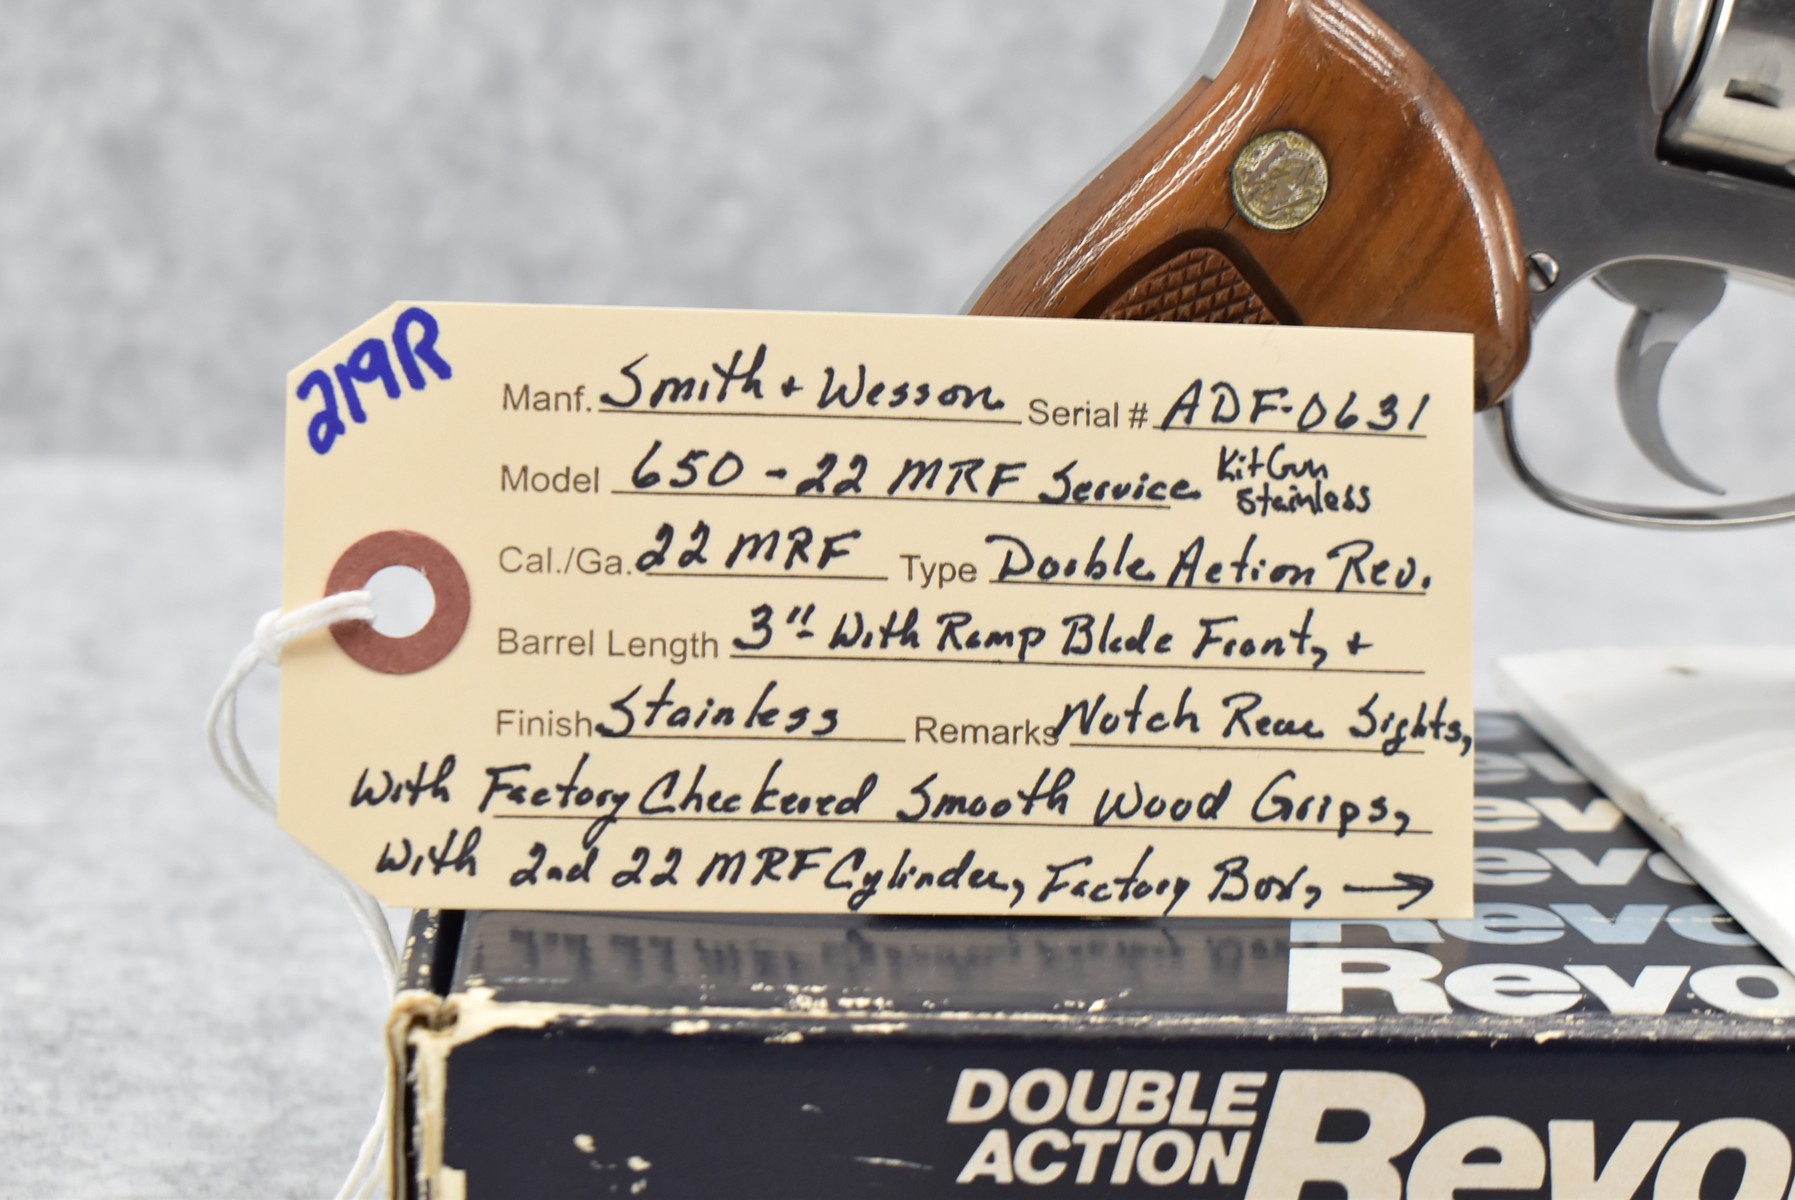 219R
Manf. Smith + Wesson Serial # ADF-0631
Model 650-22 MRF Service Kit Gun Stainless
Cal./Ga. 22 MRF Type Double Action Rev.
Barrel Length 3" With Ramp Blade Front, +
Finish Stainless Remarks Notch Rear Sights,
With Factory Checkered Smooth Wood Grips,
With 2nd 22 MRF Cylinder, Factory Box, →
Revo
DOUBLE ACTION Revo